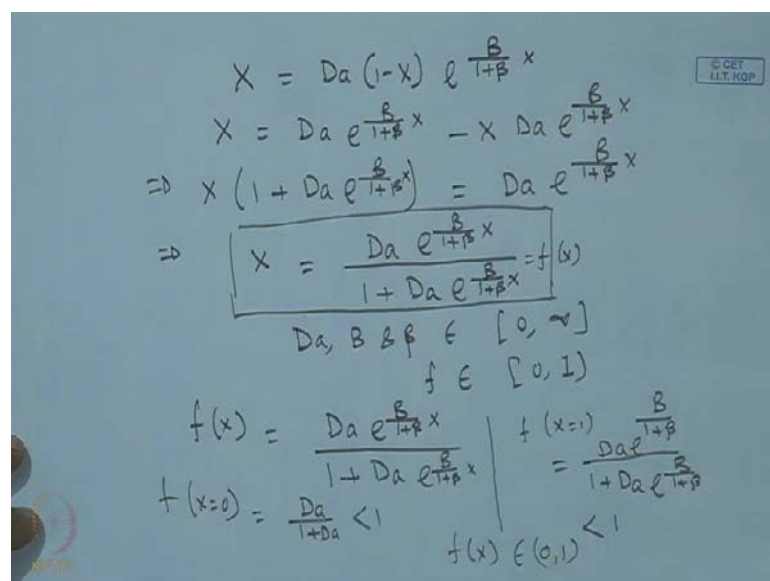 © CET
I.I.T. KGP
X = Da (1-X) e^{\frac{B}{1+β} X}
X = Da e^{\frac{B}{1+β} X} - X Da e^{\frac{B}{1+β} X}
⇒ X (1 + Da e^{\frac{B}{1+β} X}) = Da e^{\frac{B}{1+β} X}
⇒ X = \frac{Da e^{\frac{B}{1+β} X}}{1 + Da e^{\frac{B}{1+β} X}} = f(x)
Da, B & β ∈ [0, ∞]
f ∈ [0, 1)
f(x) = \frac{Da e^{\frac{B}{1+β} X}}{1 + Da e^{\frac{B}{1+β} X}}
f(x=0) = \frac{Da}{1+Da} < 1
f(x=1) = \frac{Da e^{\frac{B}{1+β}}}{1 + Da e^{\frac{B}{1+β}}} < 1
f(x) ∈ (0,1)